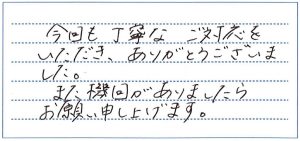 今回も丁寧な ご対応を
いただき、ありがとうございま
した。
また機回がありましたら
お願い申し上げます。